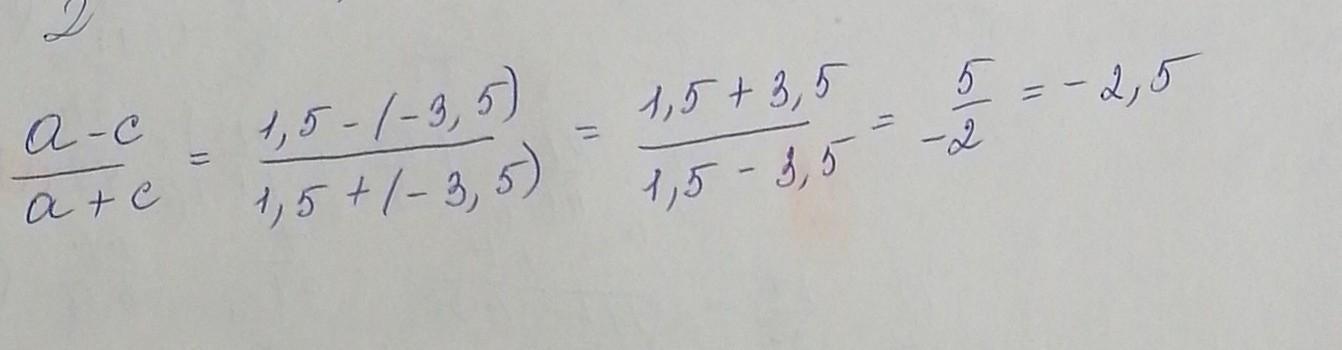 2
(a - c)/(a + c) = (1,5 - (-3,5))/(1,5 + (-3,5)) = (1,5 + 3,5)/(1,5 - 3,5) = 5/(-2) = -2,5